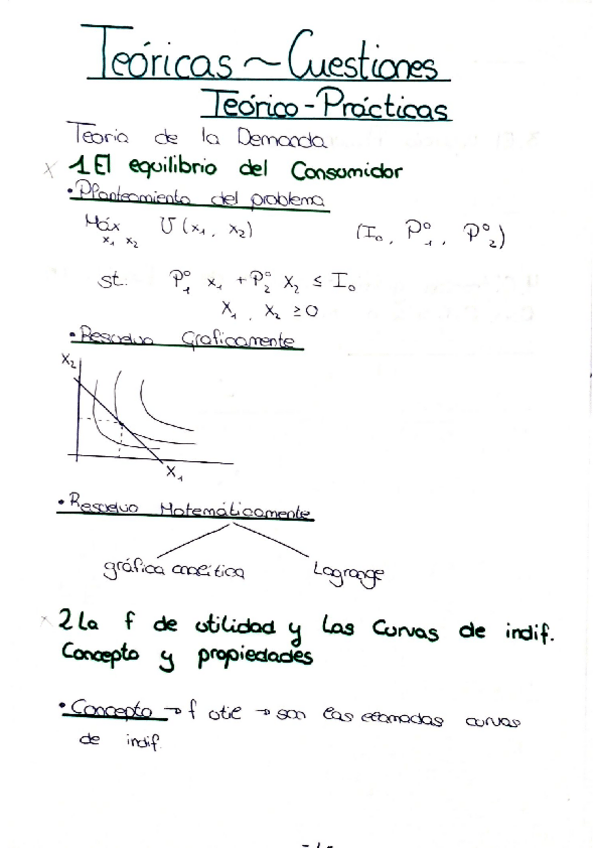 Teóricas ~ Cuestiones
Teórico-Prácticas
Teoría de la Demanda
x 1 El equilibrio del Consumidor
• Planteamiento del problema
Máx U (x₁, x₂) (I₀, P₁⁰, P₂⁰)
x₁ x₂
st. P₁⁰ x₁ + P₂⁰ x₂ ≤ I₀
x₁, x₂ ≥ 0
• Resuelvo Graficamente
x₂
x₁
• Resuelvo Matemáticamente
gráfica analítica Lagrange
x 2 La f de utilidad y las Curvas de indif.
Concepto y propiedades
• Concepto → f util → son las llamadas curvas
de indif.